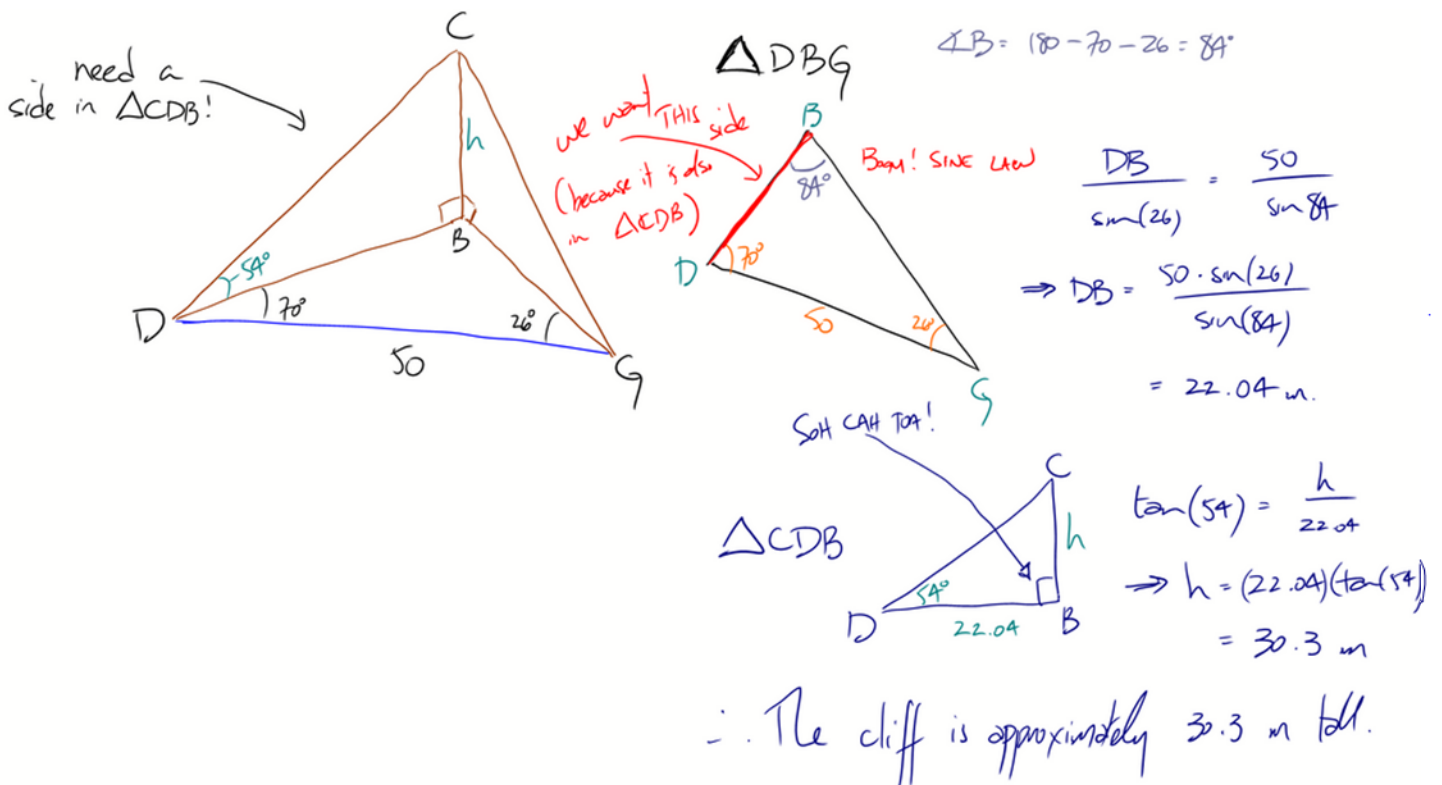 need a
side in △CDB!
C
h
B
54°
D
70°
26°
50
G
△DBG
∡B = 180 - 70 - 26 = 84°
we want THIS side
(because it is also
in △CDB)
B
84°
D
70°
50
26°
G
Boom! SINE LAW
DB / sin(26) = 50 / sin 84
⇒ DB = 50·sin(26) / sin(84)
= 22.04 m.
SOH CAH TOA!
△CDB
C
h
54°
D
22.04
B
tan(54) = h / 22.04
⇒ h = (22.04)(tan(54))
= 30.3 m
∴ The cliff is approximately 30.3 m tall.